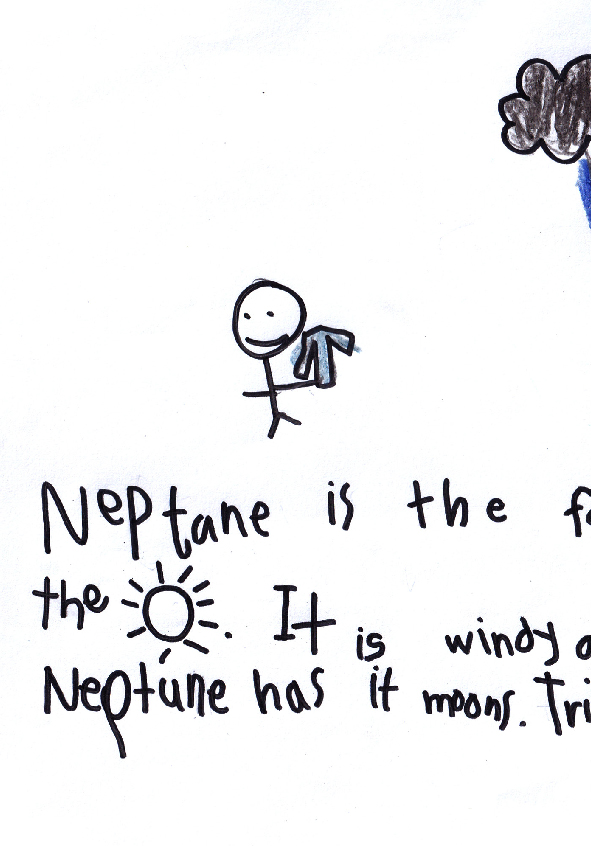 Neptane is the
the . It is windy
Neptune has it moons. Tri